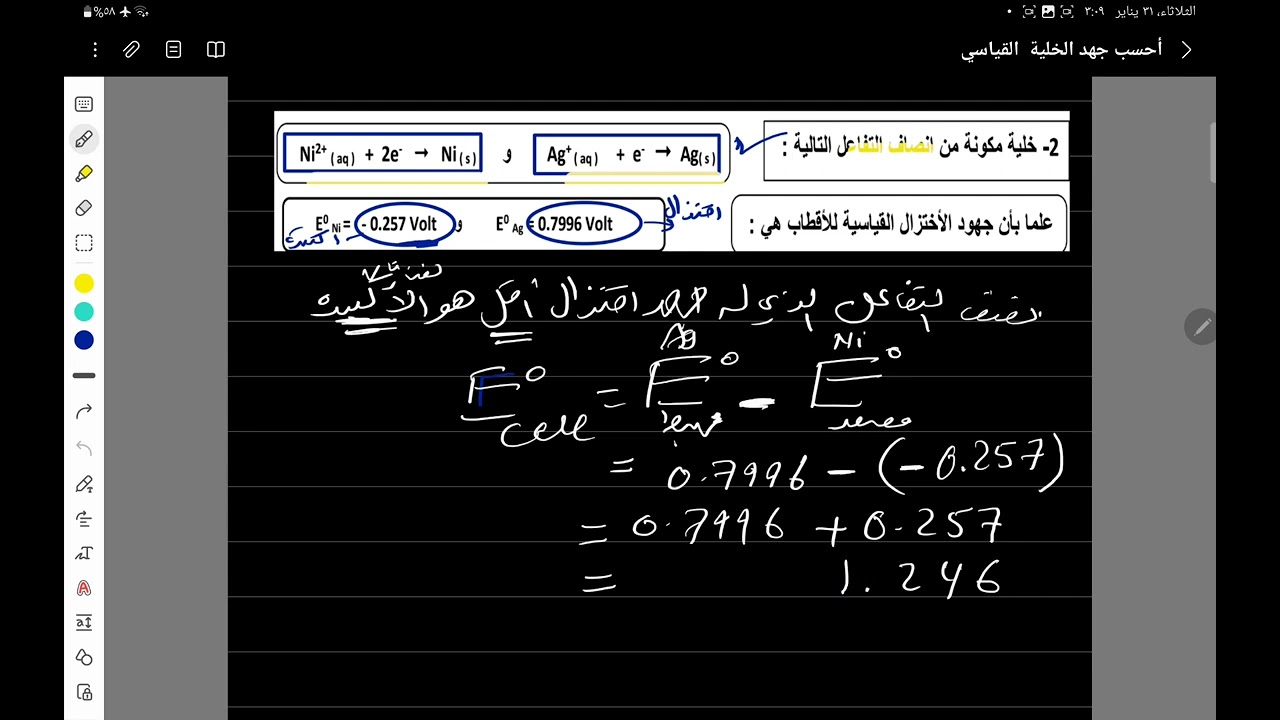 الثلاثاء، ٣١ يناير ٣:٠٩
٥٨%
أحسب جهد الخلية القياسي
2- خلية مكونة من انصاف التفاعل التالية :
Ag⁺(aq) + e⁻ → Ag(s) و Ni²⁺(aq) + 2e⁻ → Ni(s)
علما بأن جهود الأختزال القياسية للأقطاب هي :
E⁰Ni = - 0.257 Volt و E⁰Ag = 0.7996 Volt
اختزال
اكسدة
التفاعل الذي له جهد اختزال أقل هو الاكسدة
Ag Ni
E⁰cell = E⁰ - E⁰
= 0.7996 - (-0.257)
= 0.7996 + 0.257
= 1.246